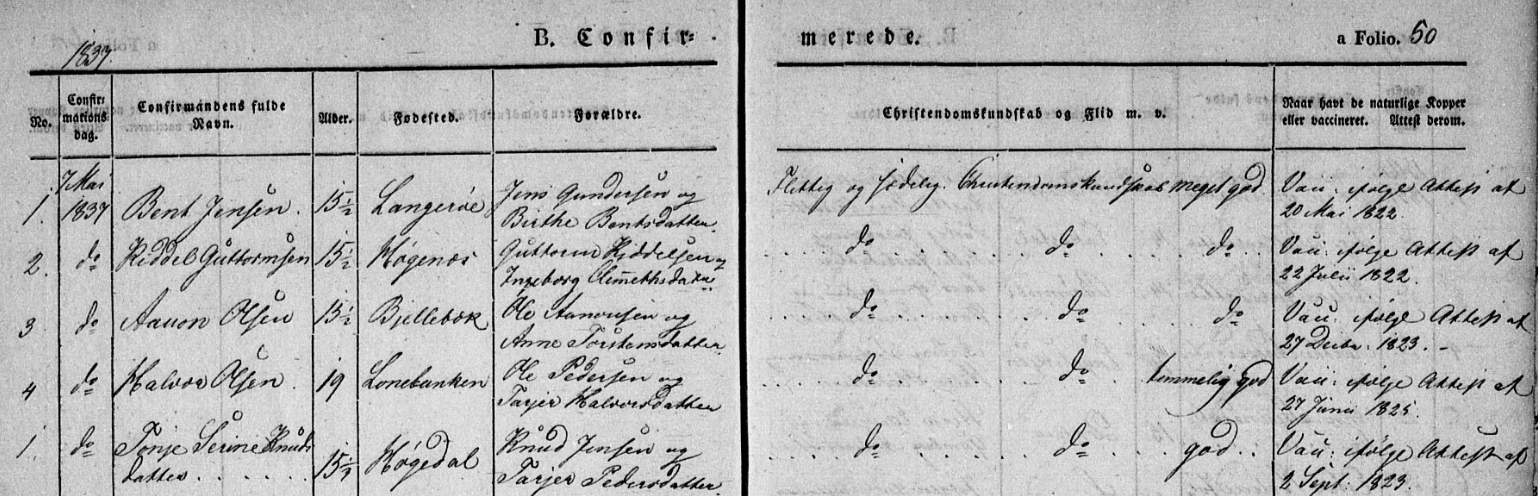 1837.
B. Confir-
merede.
a Folio. 50
No.
Confir-
mations
dag.
Confirmandens fulde
Navn.
Alder.
Fødested.
Forældre.
Christendomskundskab og Flid m. v.
Naar havt de naturlige Kopper
eller vaccineret. Attest derom.
1.
7 Mai
1837
Bent Jensen.
15½
Langerøe
Jens Gundersen og
Birthe Bentsdatter.
Flittig og sædelig. Christendomskundskab meget god.
Vacc: ifølge Attest af
20 Mai 1822.
2.
do
Kiddel Guttormsen
15½
Høgenes
Guttorm Kiddelsen og
Ingeborg
do do do
Vacc: ifølge Attest af
22 Julii 1822.
3
do
Aanon Olsen
15½
Bjellebæk
Ole Aanonsen og
Anne Torstensdatter.
do do do
Vacc: ifølge Attest af
27 Decbr. 1823. -
4
do
Halvor Olsen.
19
Lonebanken
Ole Pedersen og
Tarjer Halvorsdatter
do do temmelig god
Vacc: ifølge Attest af
27 Junii 1825.
1.
do
Tonje Serine Knuds
datter
15½
Høgedal
Knud Jensen og
Tarjer Pedersdatter.
do do god
Vacc: ifølge Attest af
2 Sept: 1823.